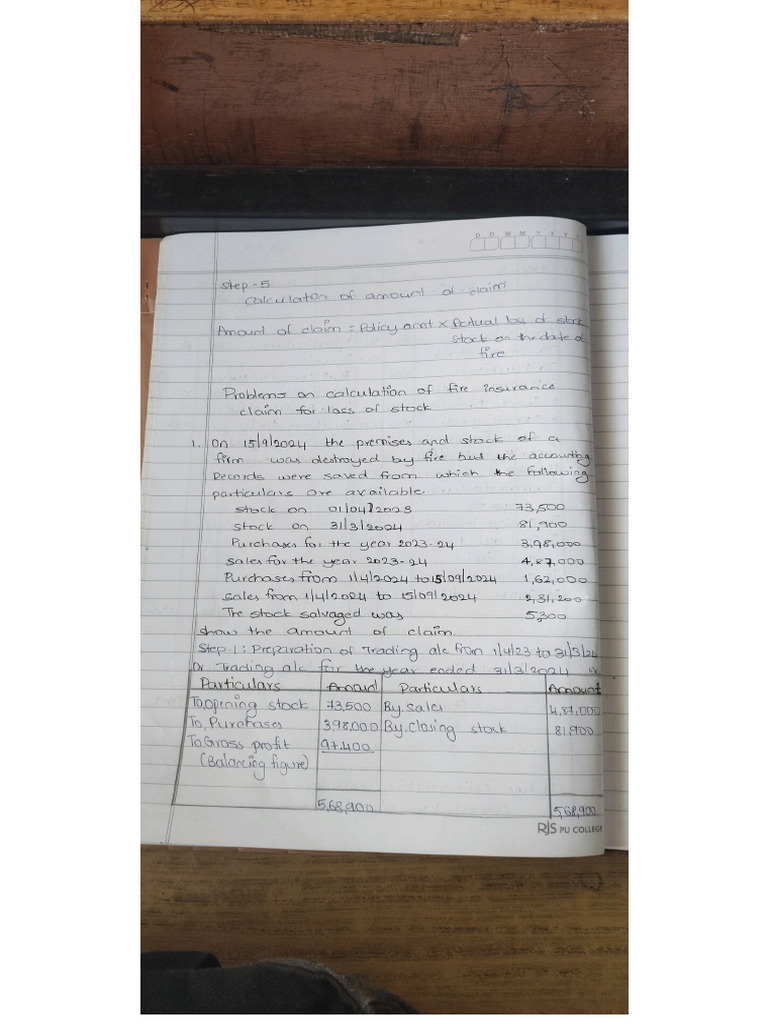 D D M M Y Y Y Y
Step-5
Calculation of amount of claim
Amount of claim = Policy amt × Actual loss of stock
stock on the date of
fire
Problems on calculation of fire insurance
claim for loss of stock
1. On 15/9/2024 the premises and stock of a
firm was destroyed by fire but the accounting
Records were saved from which the following
particulars are available.
stock on 01/04/2023 73,500
stock on 31/3/2024 81,900
Purchases for the year 2023-24 3,98,000
sales for the year 2023-24 4,87,000
Purchases from 1/4/2024 to 15/09/2024 1,62,000
sales from 1/4/2024 to 15/09/2024 2,31,200
The stock salvaged was 5,300
show the amount of claim
Step-1: Preparation of Trading a/c from 1/4/23 to 31/3/24
Dr Trading a/c for the year ended 31/3/2024
Particulars Amount Particulars Amount
To, opening stock 73,500 By sales 4,87,000
To, Purchases 398,000 By closing stock 81,900
To Gross profit 97,400
(Balancing figure)
5,68,900 5,68,900
RJS PU COLLEGE